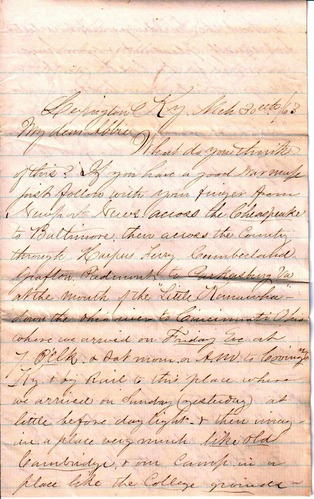 Lexington Ky, Mch 30th/63
My dear Abbie
What do you think
of this? If you have a good War map
just follow with your finger from
Newport News across the Chesapeake
to Baltimore, then across the County
through Harpers Ferry Cumberland
Grafton, Piedmont to Parkersburg Va
at the mouth of the "Little Kanawha"
down the Ohio river to Cincinnati Ohio
where we arrived on Friday Eve at
7 & Sat morn. A.M. to Covington
Ky & by Rail to this place where
we arrived on Sunday (yesterday) at
little before day light. & then
in a place very much like old
Cambridge & our Camp in a
place like the College grounds